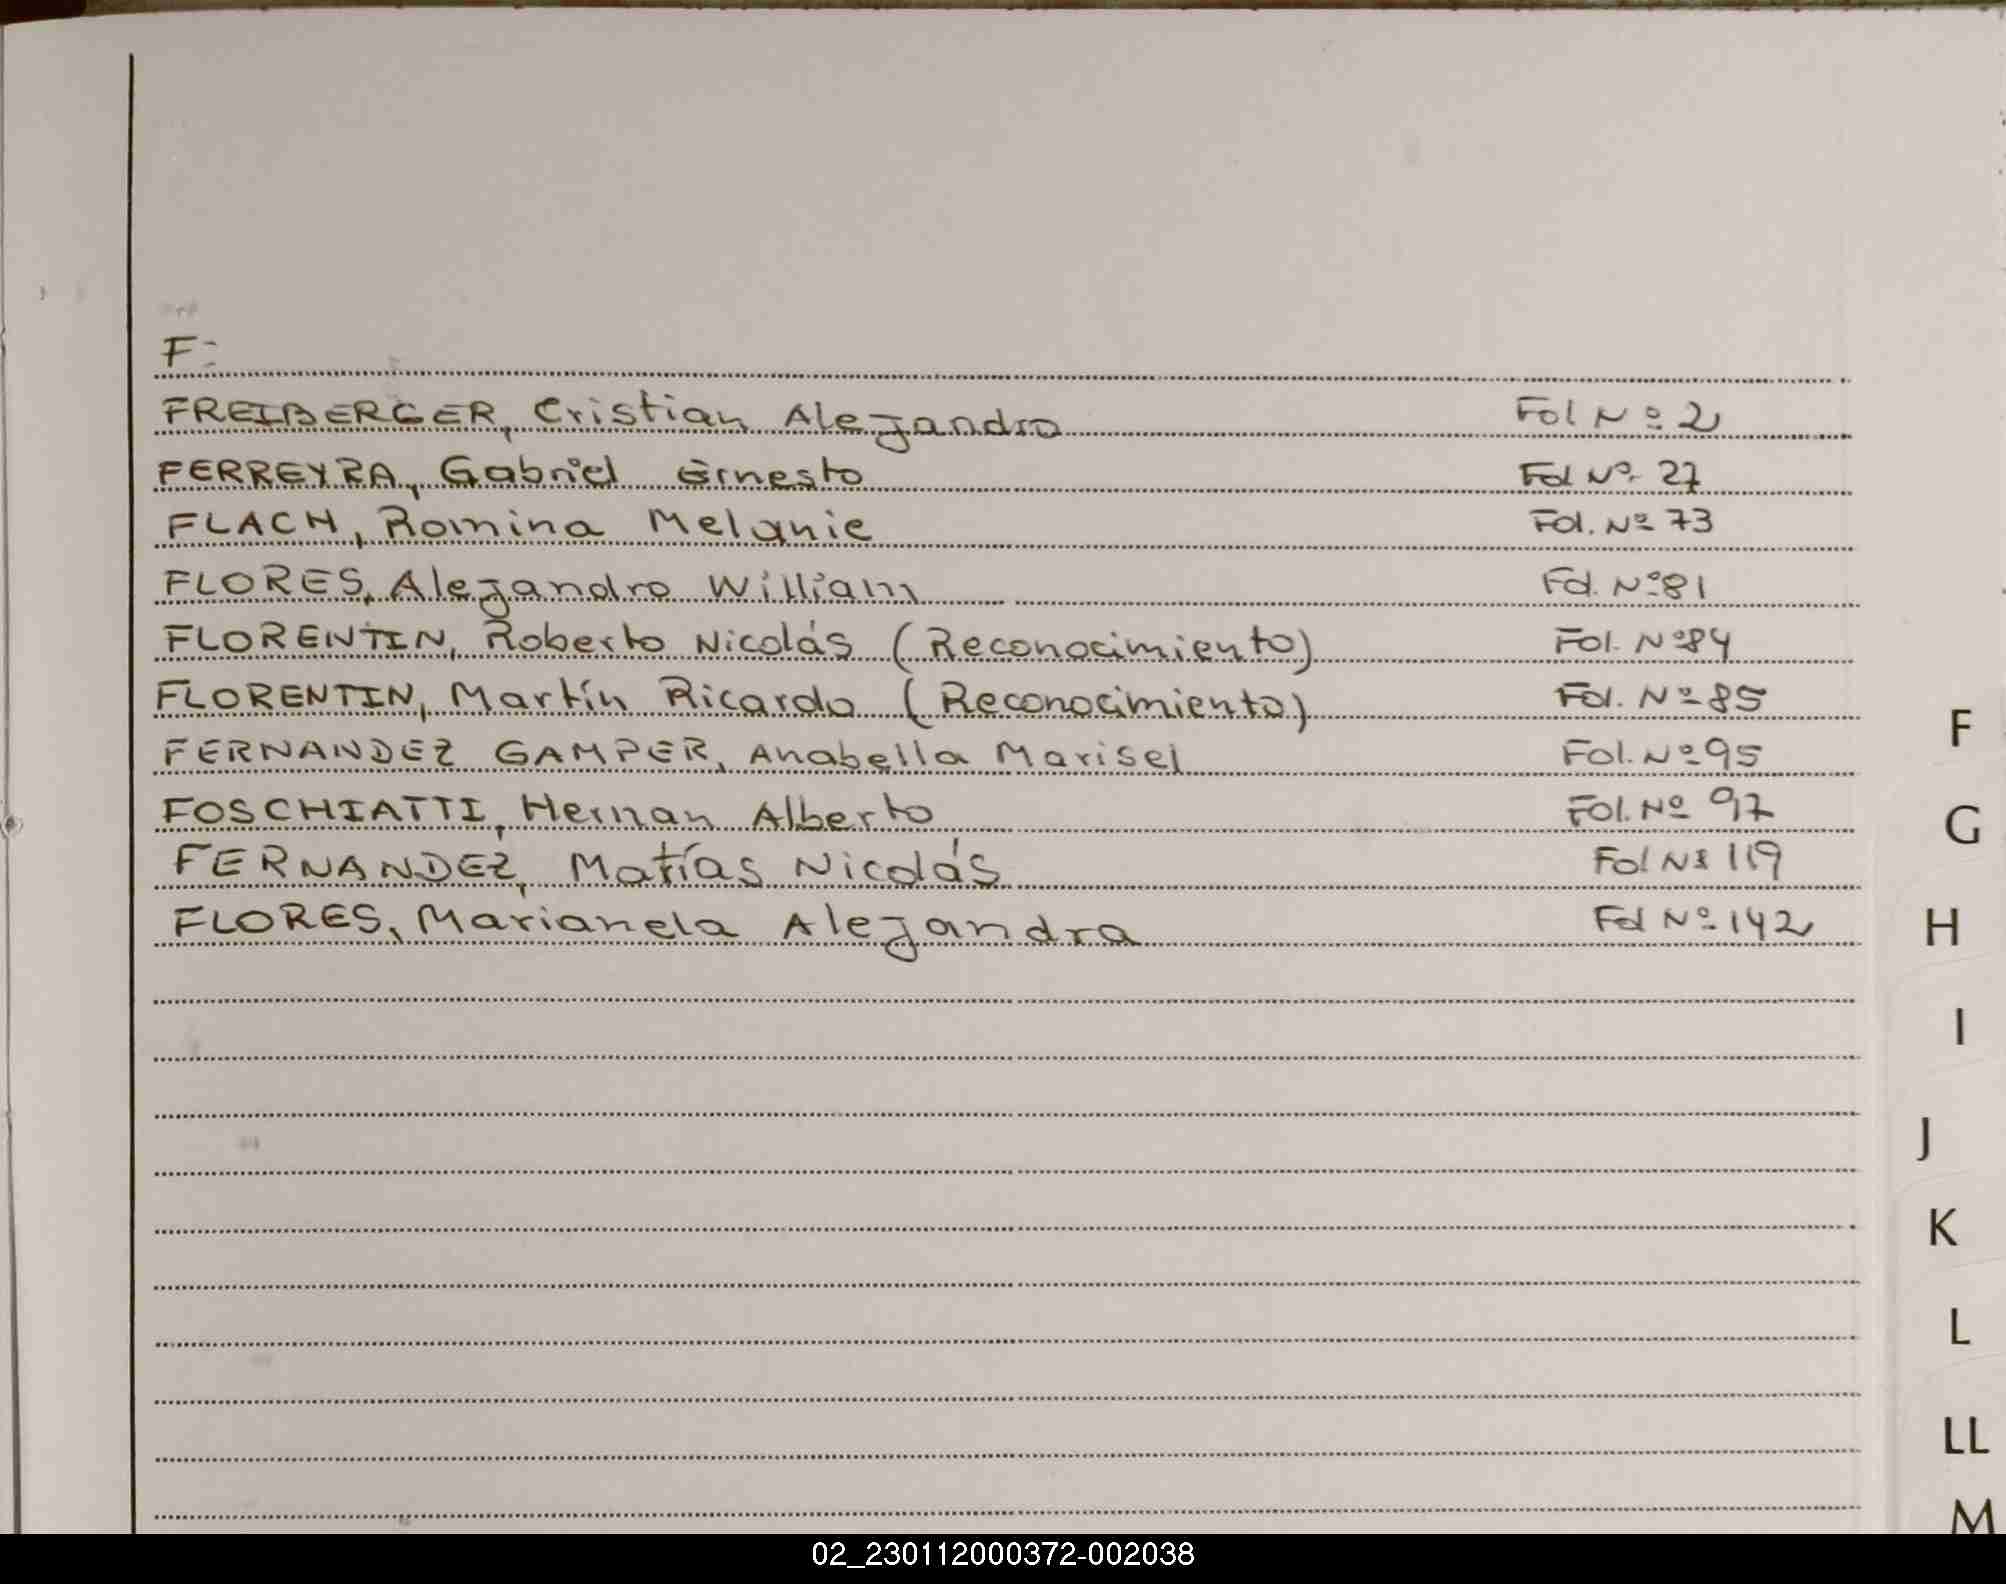 F:
FREIBERGER, Cristian Alejandro Fol Nº 2
FERREYRA, Gabriel Ernesto Fol Nº 27
FLACH, Romina Melanie Fol. Nº 73
FLORES, Alejandro William Fol. Nº 81
FLORENTIN, Roberto Nicolás (Reconocimiento) Fol. Nº 84
FLORENTIN, Martín Ricardo (Reconocimiento) Fol. Nº 85
FERNANDEZ GAMPER, Anabella Marisel Fol. Nº 95
FOSCHIATTI, Hernan Alberto Fol. Nº 97
FERNANDEZ, Matías Nicolás Fol Nº 119
FLORES, Marianela Alejandra Fol Nº 142
F
G
H
I
J
K
L
LL
M
02_230112000372-002038